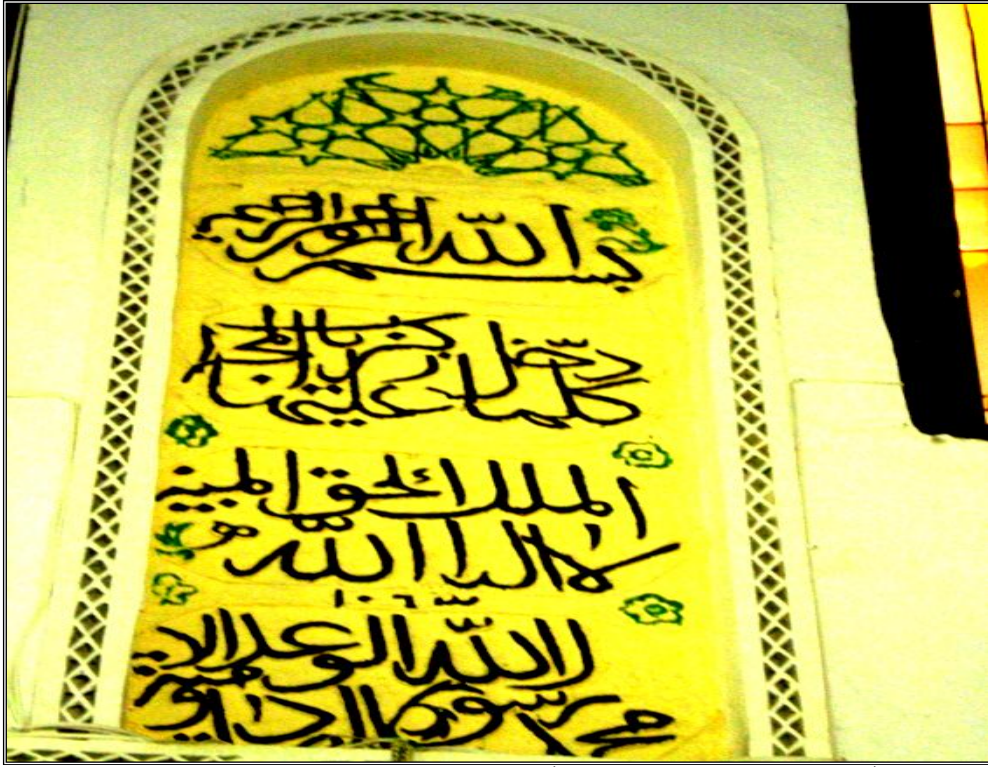 بسم الله الرحمن الرحيم
كلما دخل عليها زكريا المحرا
لا اله الا الله الملك الحق المبين
محمد رسول الله صادق الوعد الامين